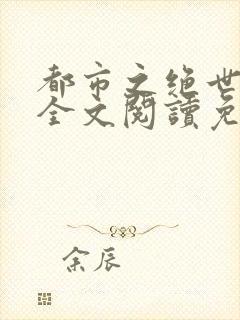 都市之绝世
全文閱讀免
余辰